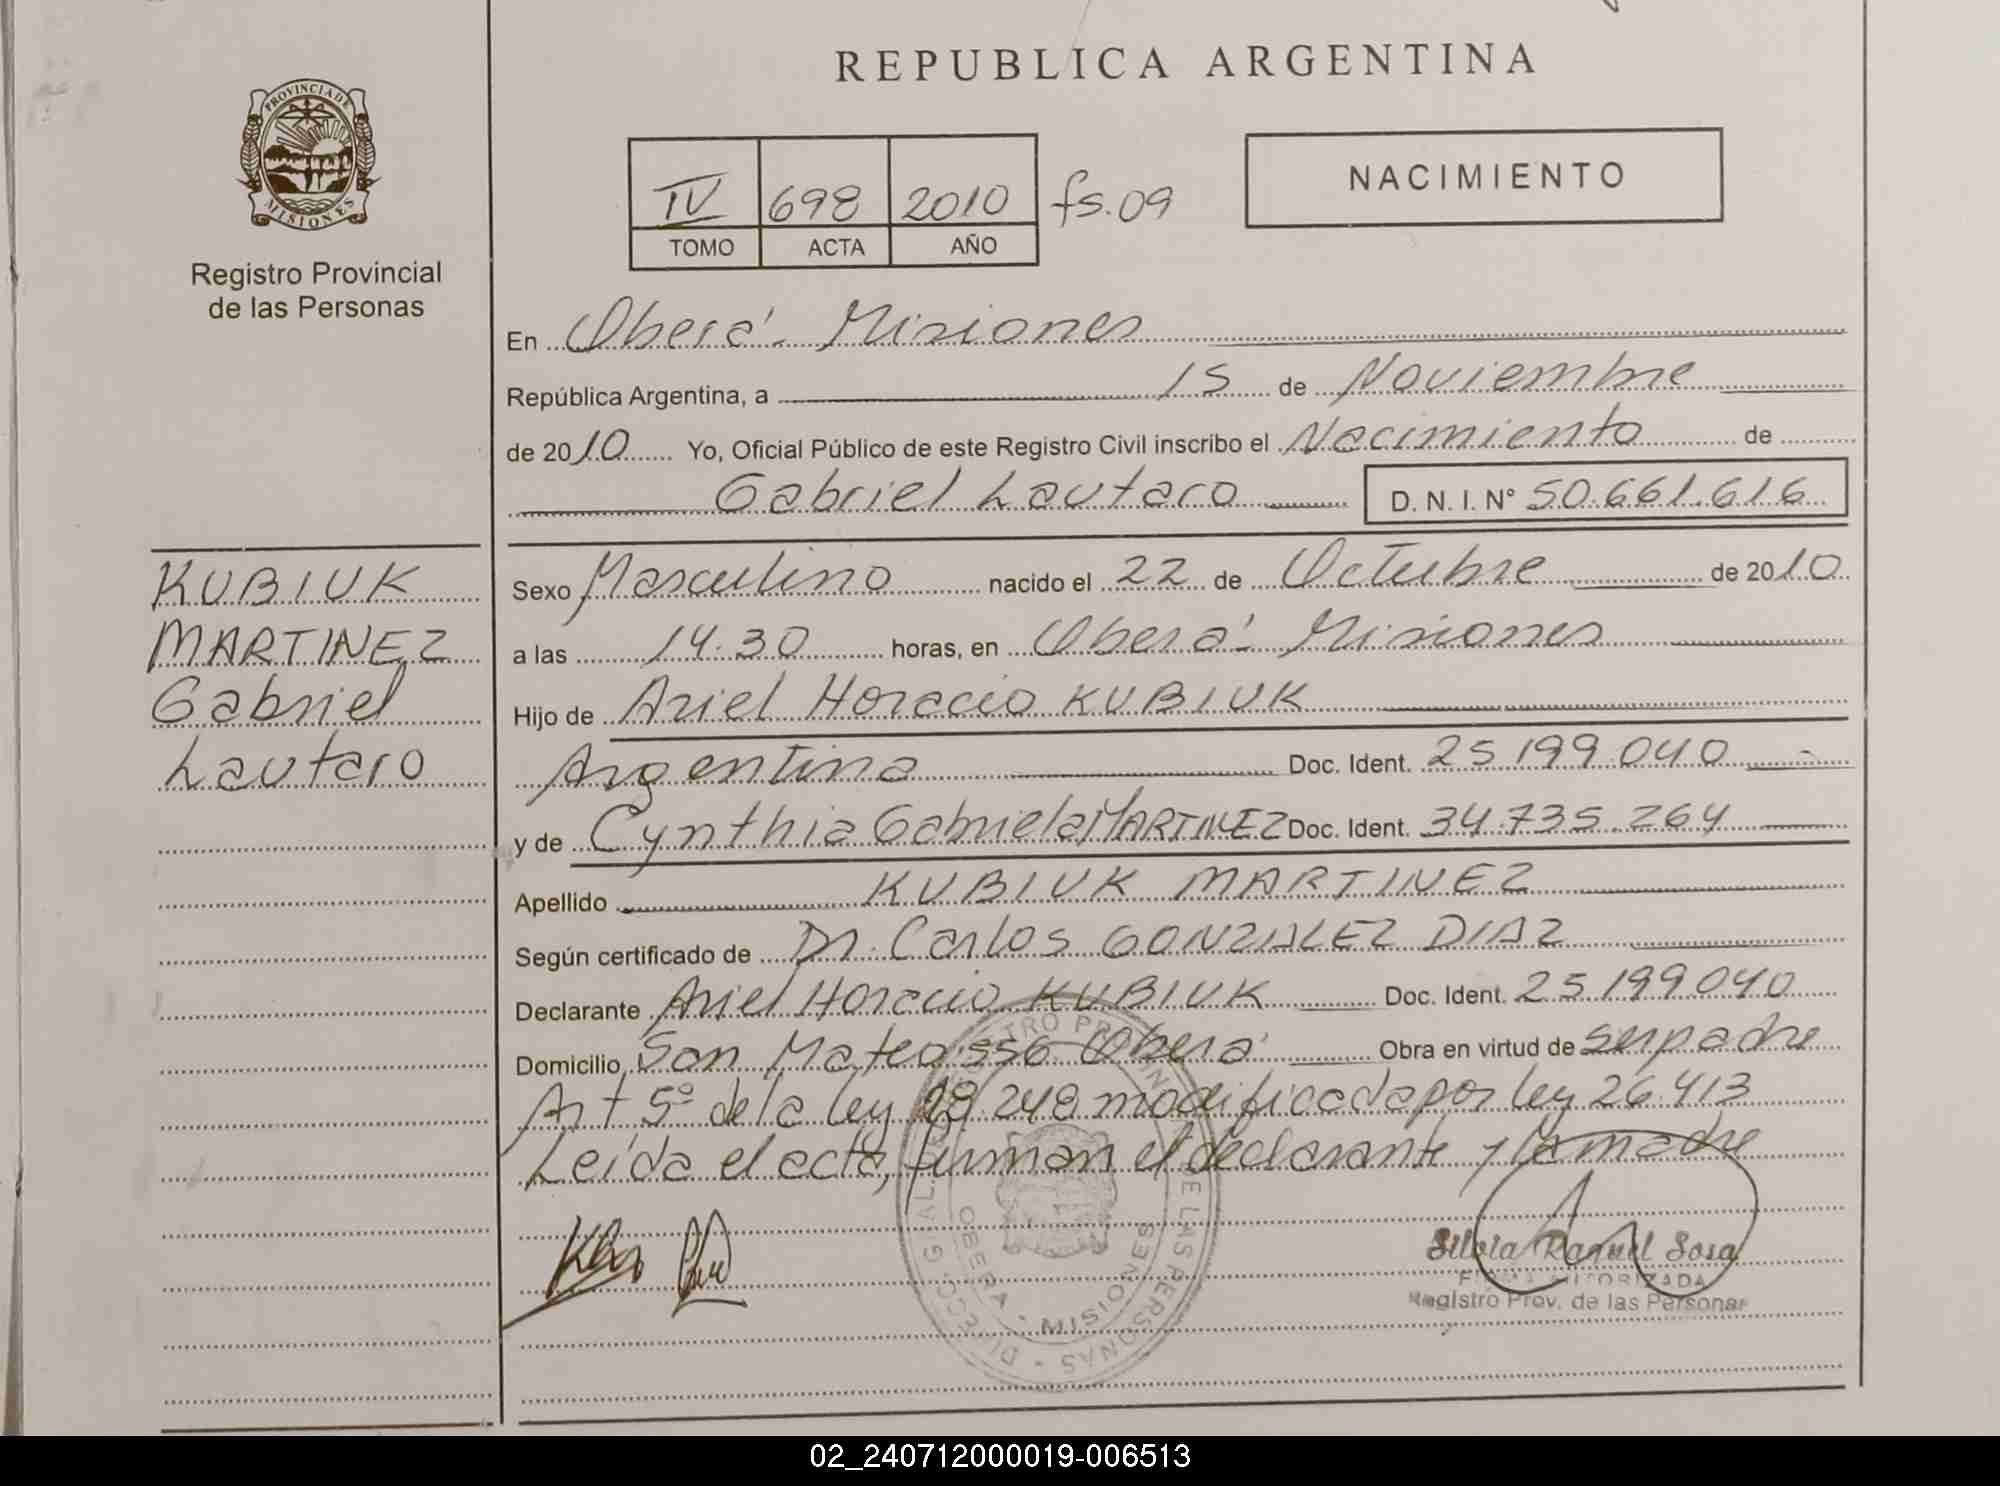 REPUBLICA ARGENTINA
PROVINCIA DE MISIONES
Registro Provincial
de las Personas
IV 698 2010 fs.09
TOMO ACTA AÑO
NACIMIENTO
En Oberá - Misiones
República Argentina, a 15 de Noviembre
de 2010 Yo, Oficial Público de este Registro Civil inscribo el Nacimiento de
Gabriel Lautaro D. N. I. N° 50.661.616
KUBIUK
MARTINEZ
Gabriel
Lautaro
Sexo Masculino nacido el 22 de Octubre de 2010
a las 14.30 horas, en Oberá - Misiones
Hijo de Ariel Horacio KUBIUK
Argentina Doc. Ident. 25.199.040
y de Cynthia Gabriela MARTINEZ Doc. Ident. 34.735.264
Apellido KUBIUK MARTINEZ
Según certificado de Dr. Carlos GONZALEZ DIAZ
Declarante Ariel Horacio KUBIUK Doc. Ident. 25.199.040
Domicilio San Mateo 556 Oberá Obra en virtud de ser padre
Art 5º de la ley 18.248 modificada por ley 26.413
Leída el acta, firman el declarante y la madre
REGISTRO PROVINCIAL DE LAS PERSONAS
OBERA - MISIONES
Silvia Raquel Sosa
FIRMA AUTORIZADA
Registro Prov. de las Personas
02_240712000019-006513